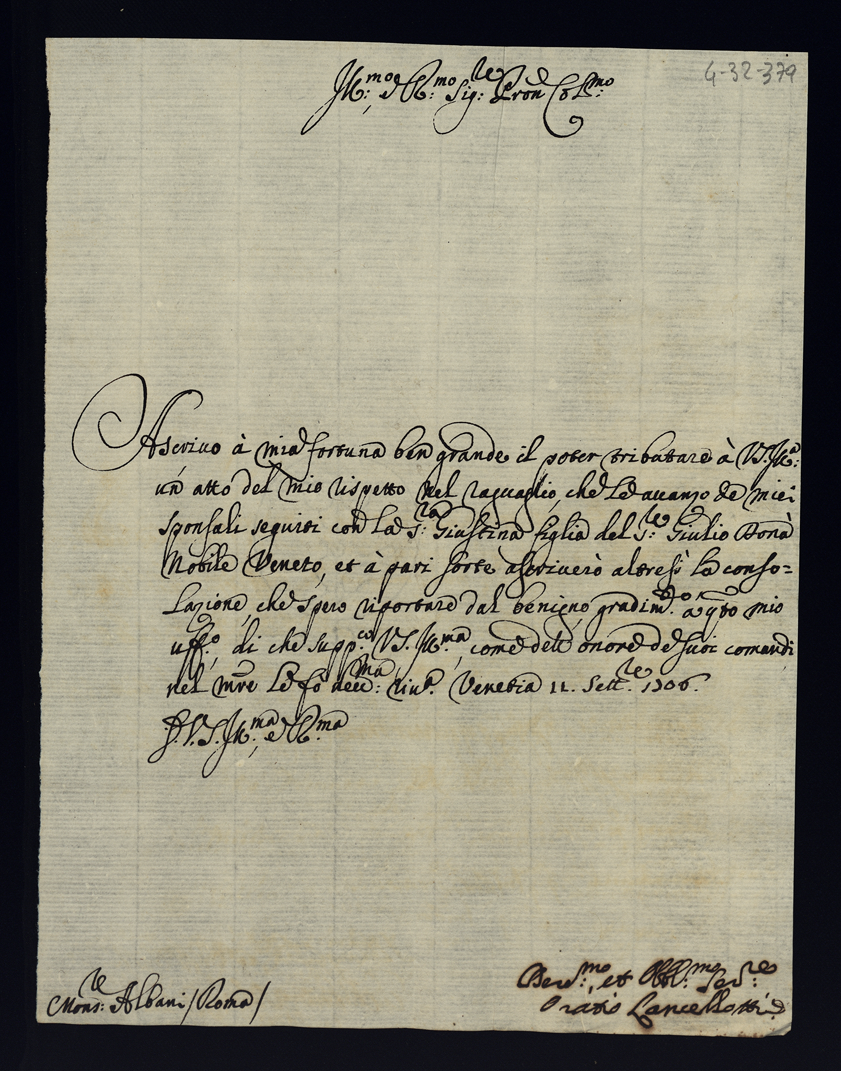 4-32-379
Ill:mo, e R:mo Sig:re Pron Col:mo
Ascrivo à mia fortuna ben grande il poter tributare à V.S. Ill:ma
un atto del mio rispetto nel raguaglio, che Le avanzo de miei
sponsali seguiti con la S:ra Giustina figlia del S:re Giulio Donà
Nobile Veneto, et à pari sorte ascriverò altresì la conso=
lazione, che spero riportare dal benigno gradim:to a qto mio
uff:o, di che supp:co V.S. Ill:ma, come dell onore de suoi comandi
nel mre Le fò riv:a Venetia 11. Sett:re 1706.
D. V. S. Ill:ma, e R:ma
Mons:re Albani /Roma/
Dev:mo, et Obl:mo Ser:re
Oratio Lancellotti